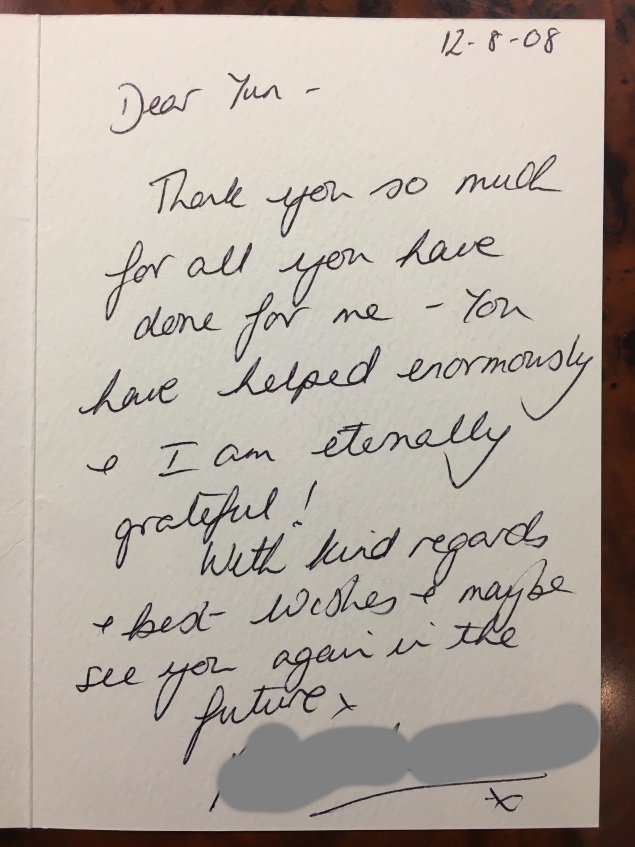 12-8-08
Dear Yun -
Thank you so much
for all you have
done for me - You
have helped enormously
& I am eternally
grateful!
With kind regards
& best wishes & maybe
see you again in the
future x
x